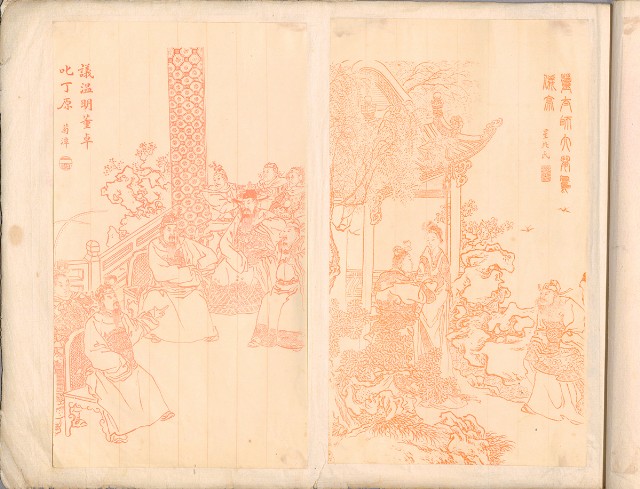 議溫明董卓
叱丁原
董太師大鬧鳳
儀亭